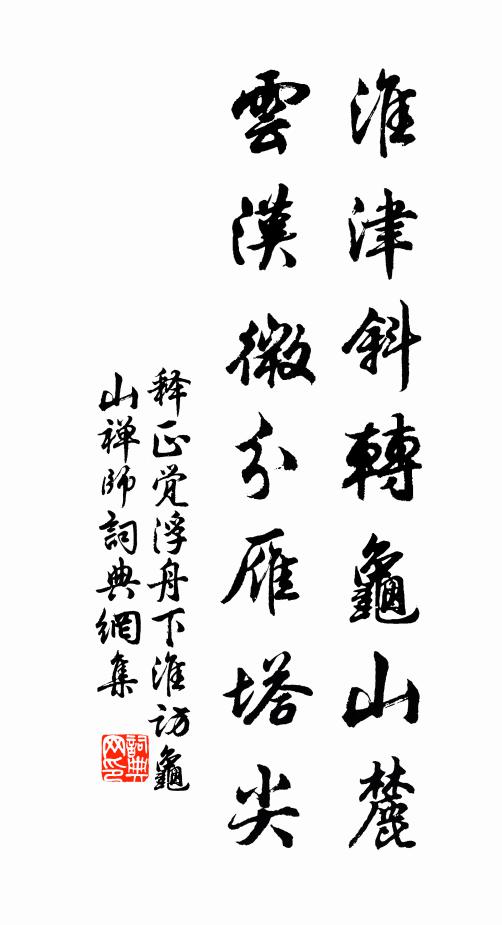 淮津斜轉龜山麓
雲漢微分雁塔尖
释正觉浮舟下淮訪龜
山禅師詞典網集
詞典
网印